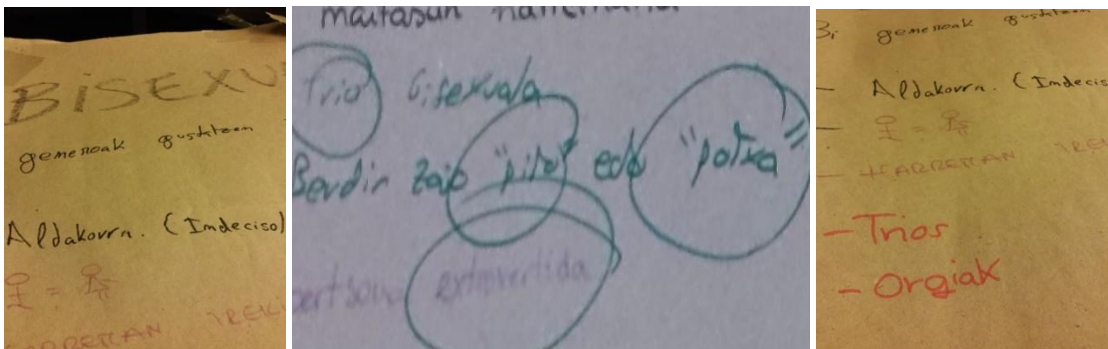 BISEXU
gemenoak gustatzen
Aldakorra. (Indeciso)
♀ =
HARREMAN IREKI
maitasun
"Trio" bisexuala
Berdin zaio "pito" edo "potxa"
pertsona extrovertida
Bi gemenoak gustatzen
- Aldakorra. (Indecis
- ♀ =
- HARREMAN IREK
- Trios
- Orgiak